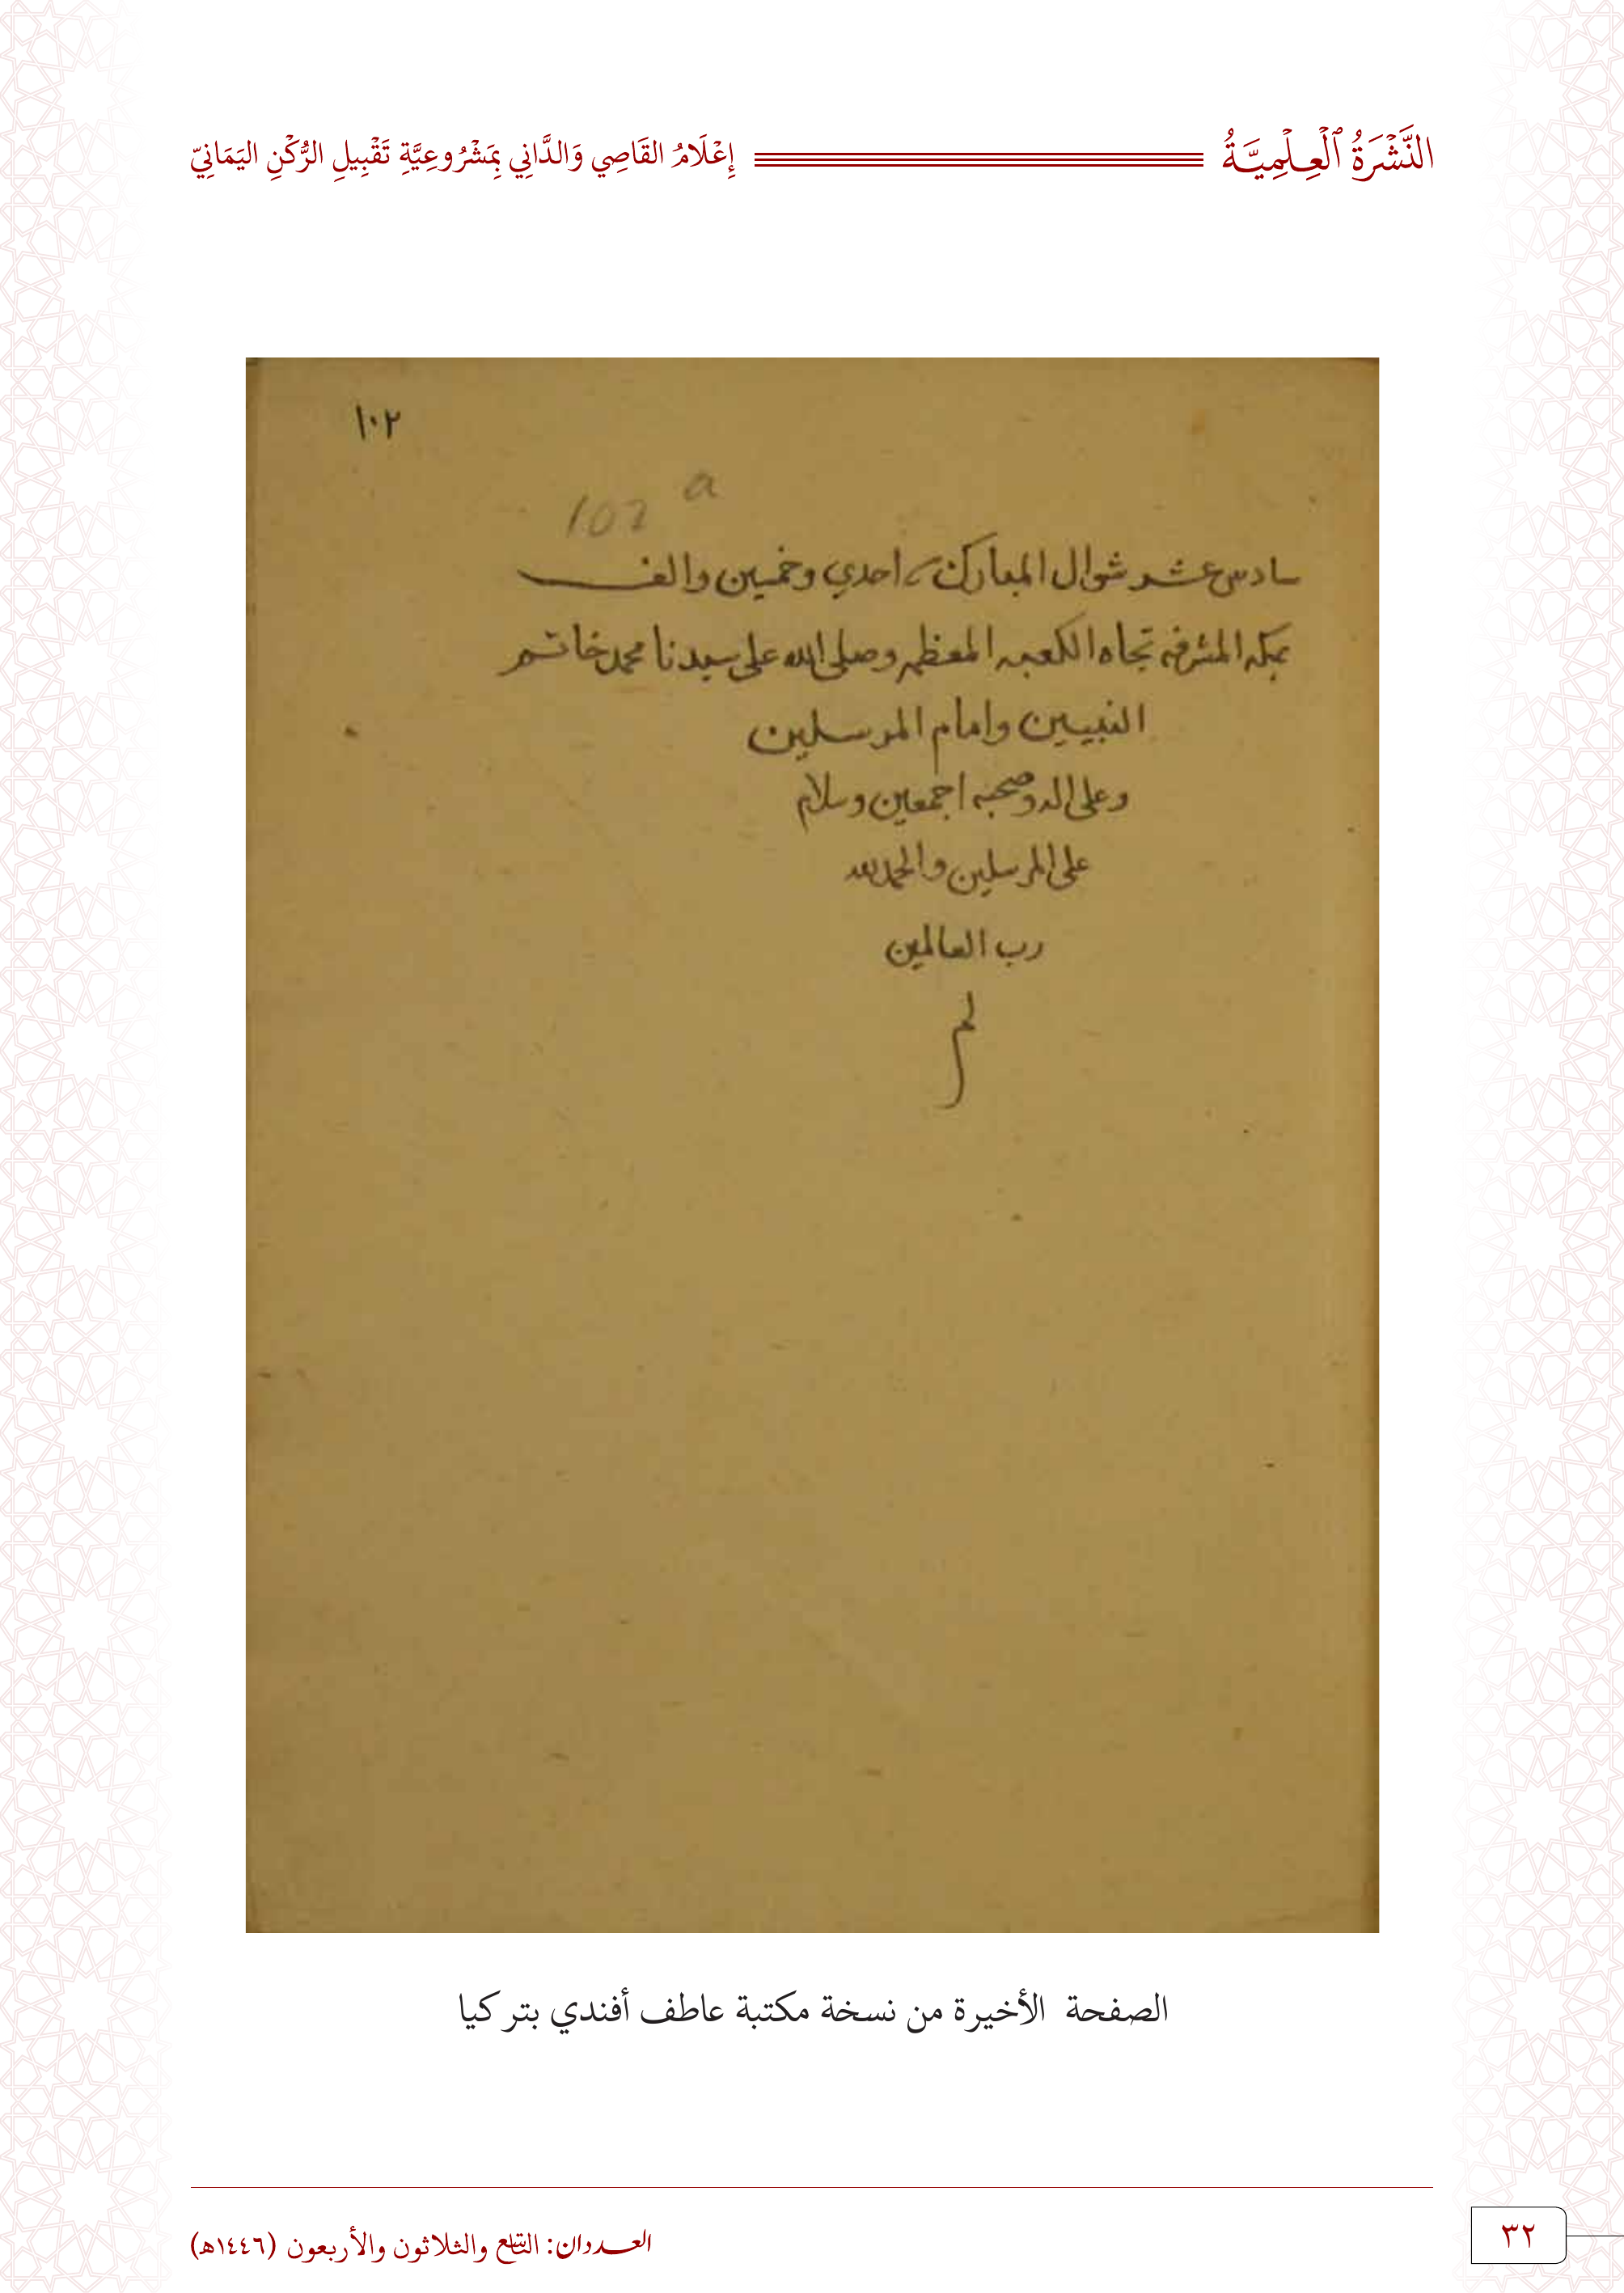 النَّشْرَةُ ٱلْعِلْمِيَّةُ إِعْلَامُ القَاصِي وَالدَّانِي بِمَشْرُوعِيَّةِ تَقْبِيلِ الرُّكْنِ اليَمَانِيّ
١٠٢
102 a
سادس عشر شوال المبارك احدي وخمسين والف
بمكه المشرفه تجاه الكعبه المعظمه وصلى الله على سيدنا محمد خاتم
النبيين وامام المرسلين
وعلى اله وصحبه اجمعين وسلام
على المرسلين والحمد لله
رب العالمين
الصفحة الأخيرة من نسخة مكتبة عاطف أفندي بتركيا
العددان: التاسع والثلاثون والأربعون (١٤٤٦هـ)
٣٢